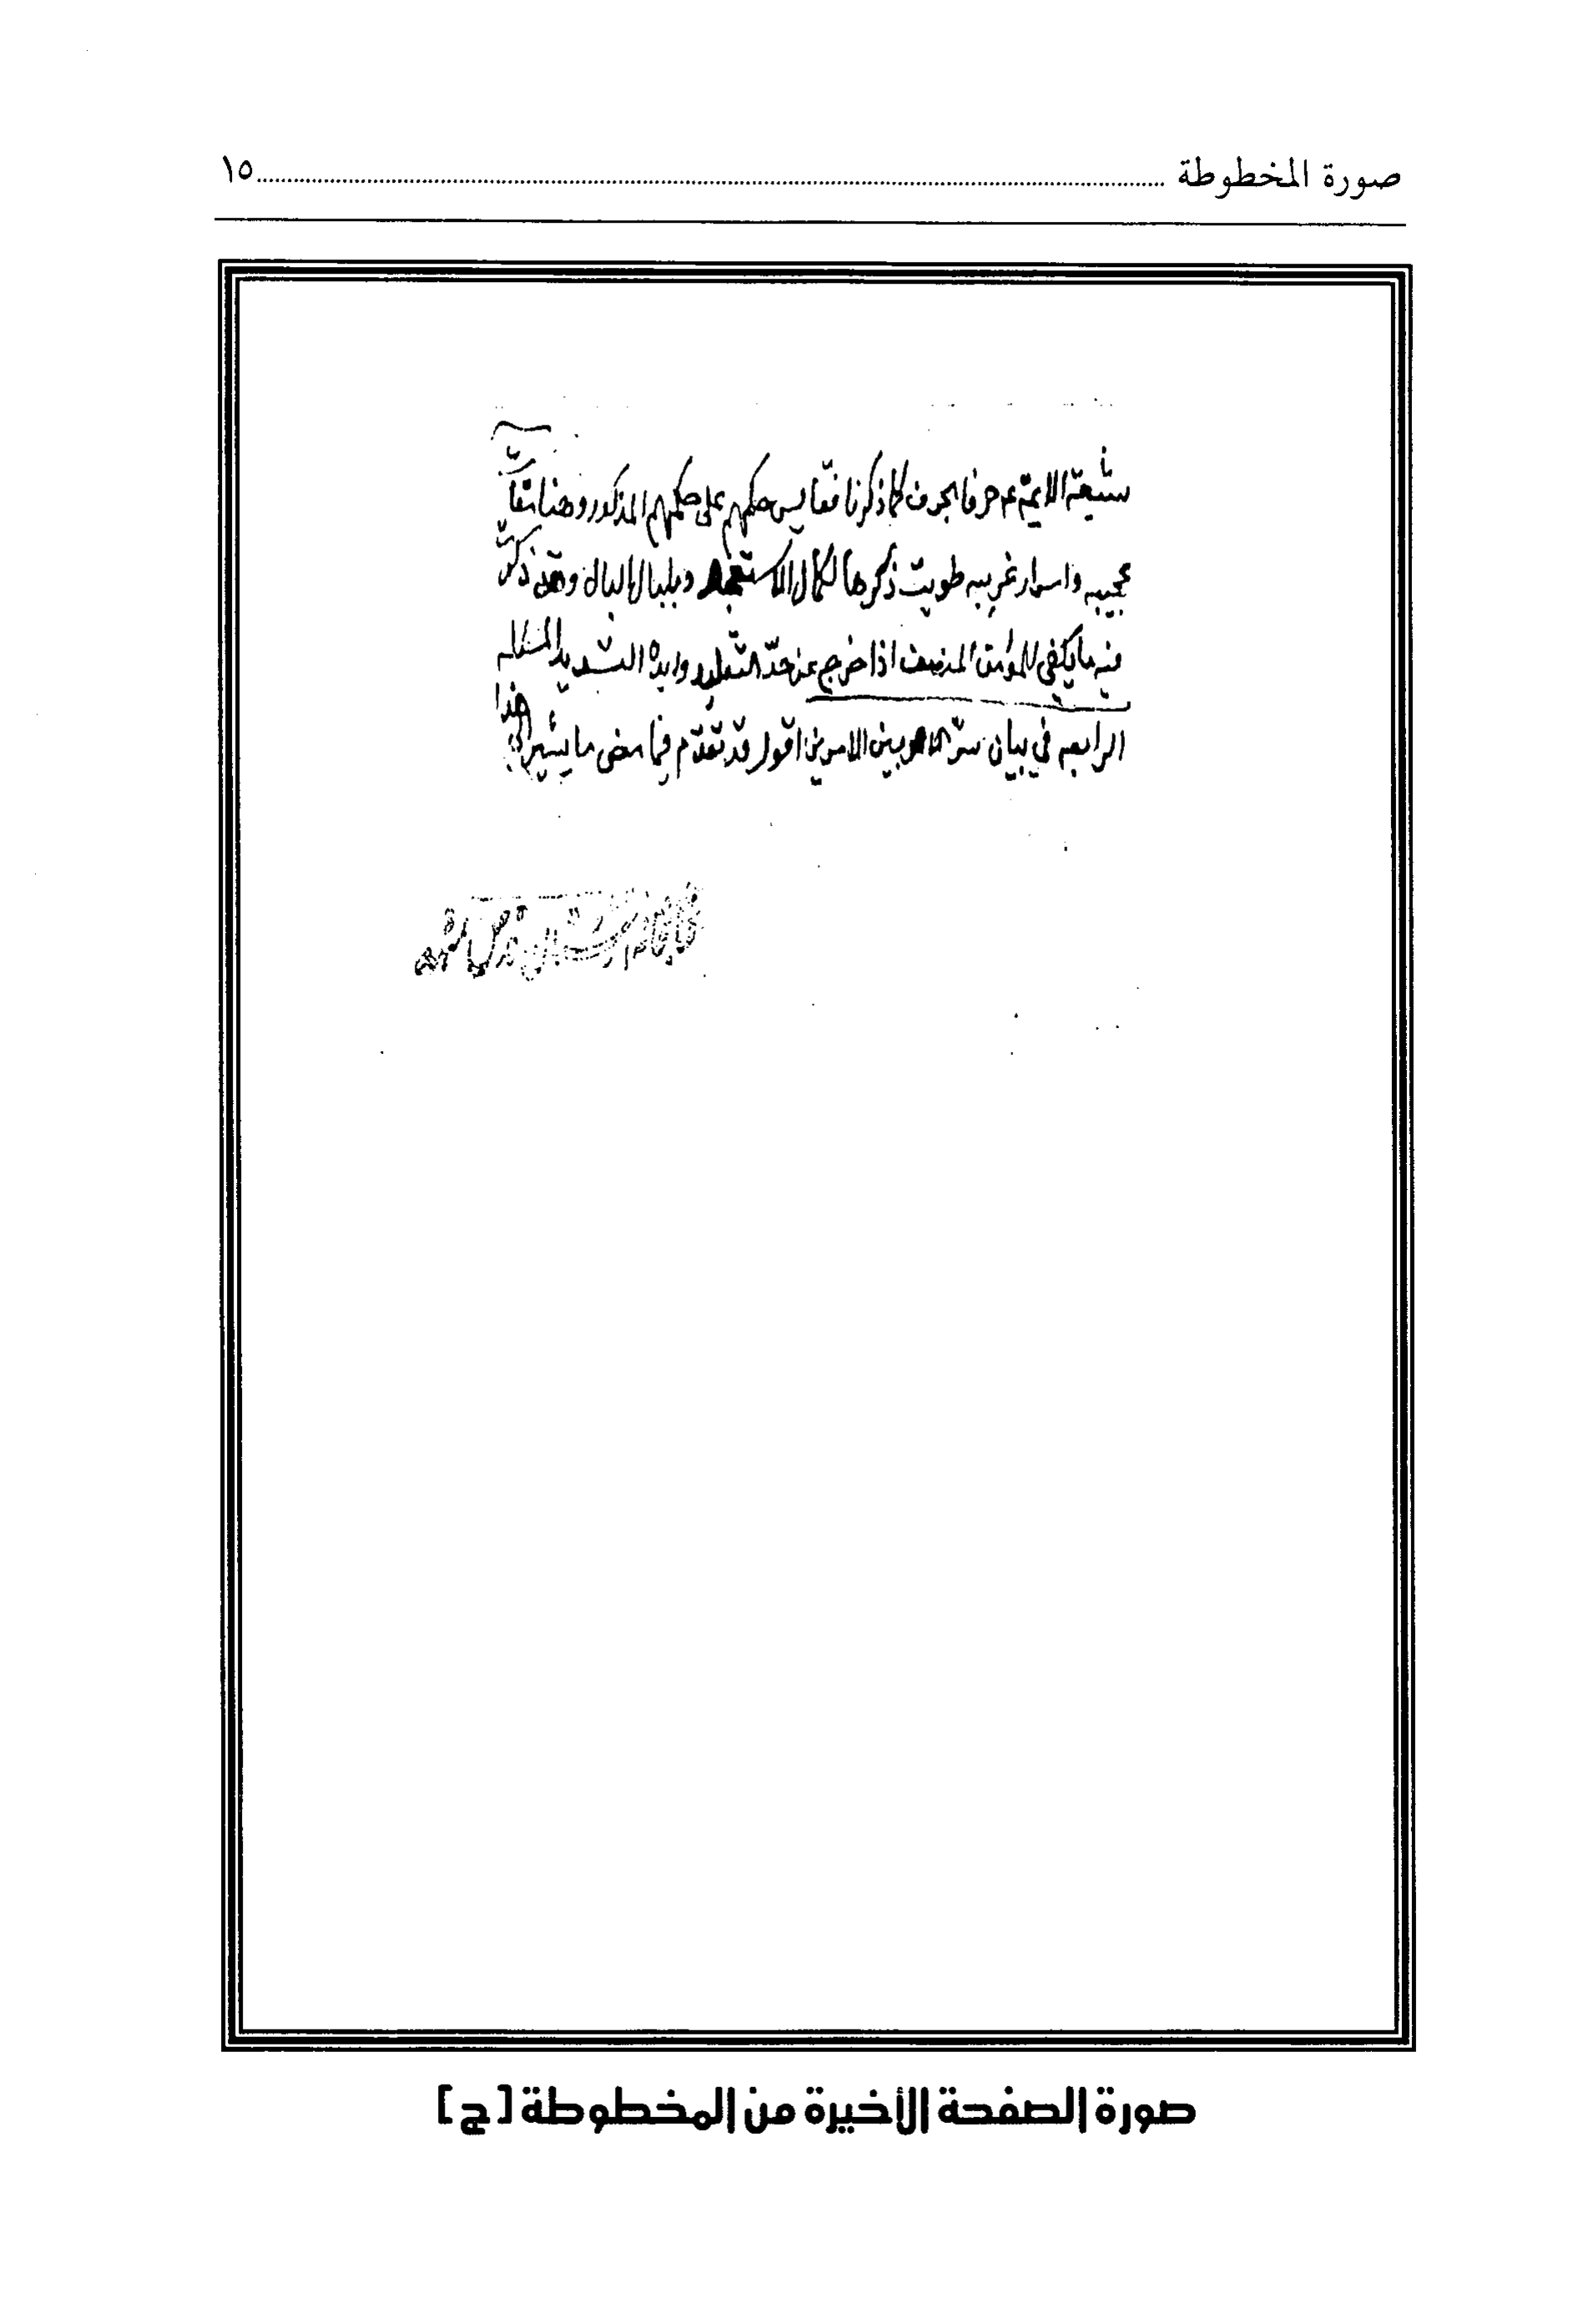 صورة المخطوطة ........ ١٥
شيعة الايمة ع م حرفا بحرف كما ذكرنا فقايس حكمهم على حكمهم المذكور وهنا
عجيبه واسرار غريبه طويت ذكرها لكمال الاستعجال وبلبال البال وقد ذكرت
فيه ما يكفي للمؤمن المنصف اذا خرج عن حدّ التقليد والتسديد المسئلة
الرابعه في بيان سرّ الامر بين الامرين اقول قد تقدّم فيما مضى ما يشير الى هذا
صورة الصفحة الأخيرة من المخطوطة [ج]